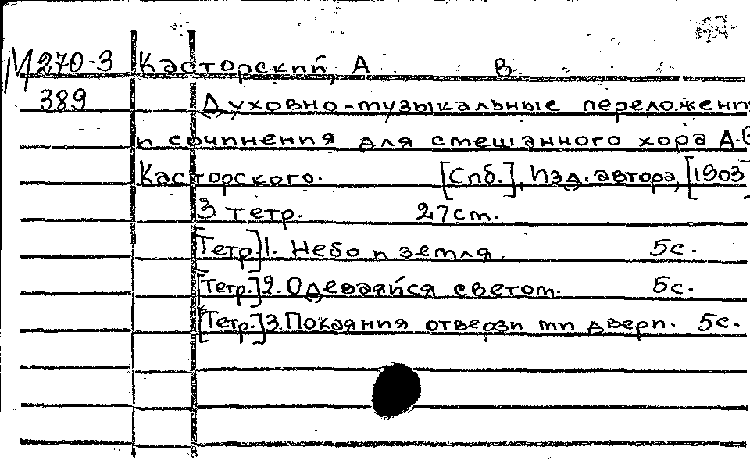 М 270-3 Касторский, А В.
389 Духовно-музыкальные переложени
и сочинения для смешанного хора А.В
Касторского. [Спб.], Изд. автора, [1903
3 тетр. 27 см.
[Тетр.] 1. Небо и земля. 5 с.
[Тетр.] 2. Одеваяйся светом. 5 с.
[Тетр.] 3. Покаяния отверзи ми двери. 5 с.